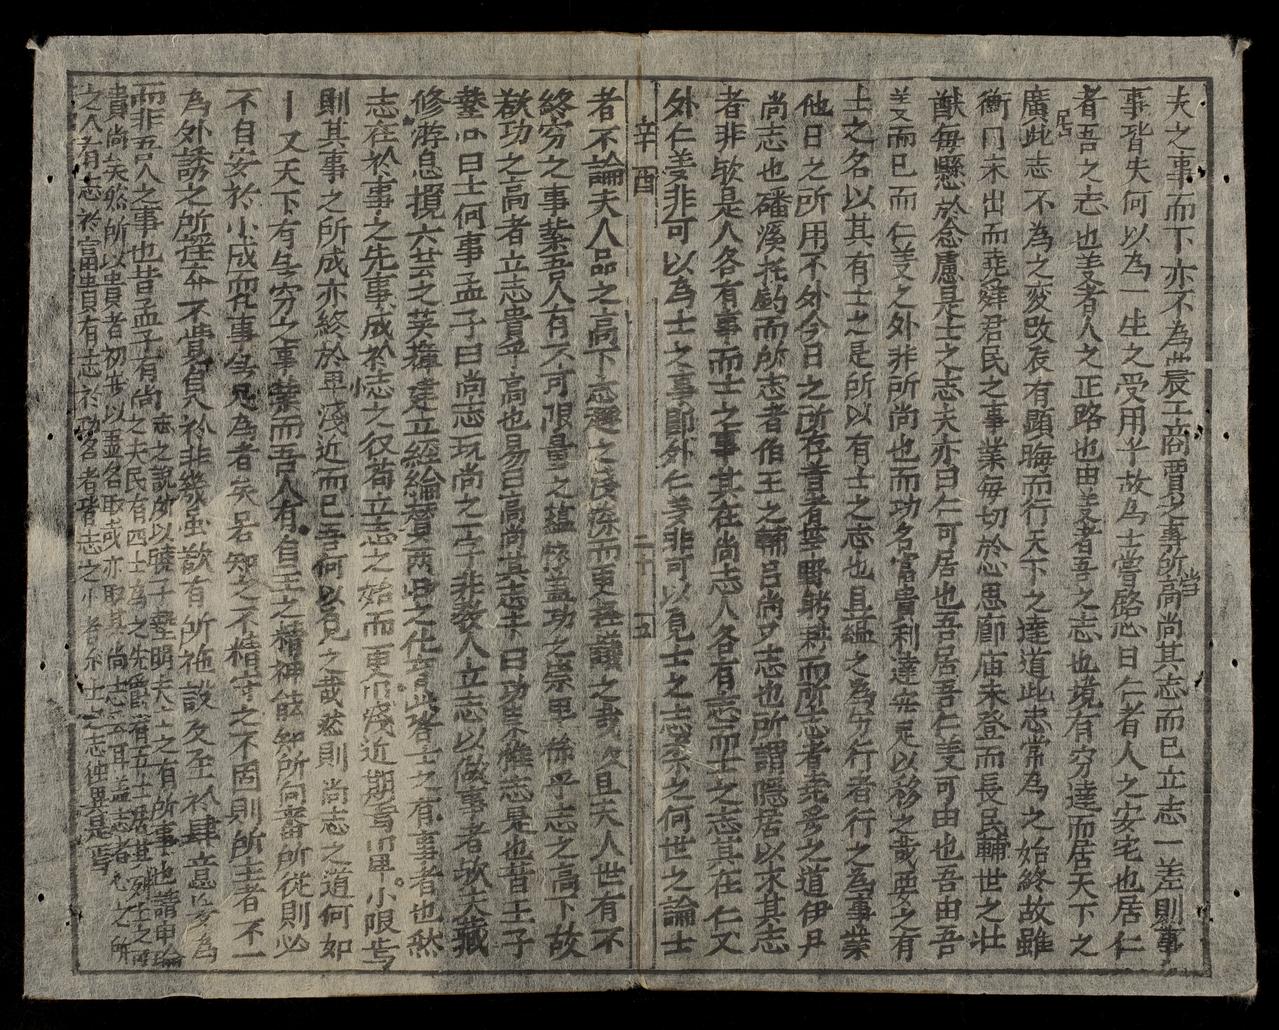 夫之事而下亦不為農工商賈之事所當高尚其志而已立志一差則事
事皆失何以為一生之受用乎故為士嘗啓心曰仁者人之安宅也居仁
者吾之志也義者人之正路也由義者吾之志也境有窮達而居天下之
廣居此志不為之變改友有顯晦而行天下之達道此志常為之始終故雖
衡門未出而堯舜君民之事業每切於心思廊庙未登而長民輔世之壯
猷每懸於念慮是士之志夫亦曰仁可居也吾居吾仁義可由也吾由吾
義而已而仁義之外非所尚也而功名富貴利達無足以移之哉要之有
士之名以其有士之是所以有士之志也且縕之為穷行者行之為事業
他日之所用不外今日之所存昔者莘野躬耕而所志者堯舜之道伊尹
尚志也磻溪托釣而所志者伯王之輔吕尚又志也所謂隱居以求其志
者非欤是人各有事而士之事其在尚志人各有志而士之志其在仁又
外仁義非可以為士之事節外仁義非可以見士之志奈之何世之論士
辛酉
二十五
者不論夫人品之高下志趣之淺深而更輕議之哉 且夫人世有不
終穷之事業吾人有不可限量之蕴 盖功之崇甲係乎志之高下故
欲功之高者立志貴乎高也易曰高尚其志王曰功崇惟志是也昔王子
墊 曰士何事孟子曰尚志玩尚之一字非教人立志以做事者欤大蔵
修游息撹六芸之英 建立經綸賛兩间之化育此皆士之有事者也然
志在於事之先事成於志之後苟立志之始而更 淺近期焉而卑小限焉
則其事之所成亦終於卑淺近而已吾何以見之哉然則尚志之道何如
一又天下有生穷之事業而吾人有自主之精神能知所向審所從則必
不自安於小成而在事無足為者矣若知之不精守之不固則所主者不一
為外誘之所 不覺自入於非幾虽欲有所施設 至於肆意 為
而非吾人之事也昔孟子有尚志之說所以曉子墊明夫士之有所事也請申論
之夫民有四士為之先爵有五士居其列士之可
貴尚矣然所以貴者初無以盡名取或亦取其尚志云耳盖志者心之所
之人有志於富貴有志於功名者皆志之小者 士之志独異是焉